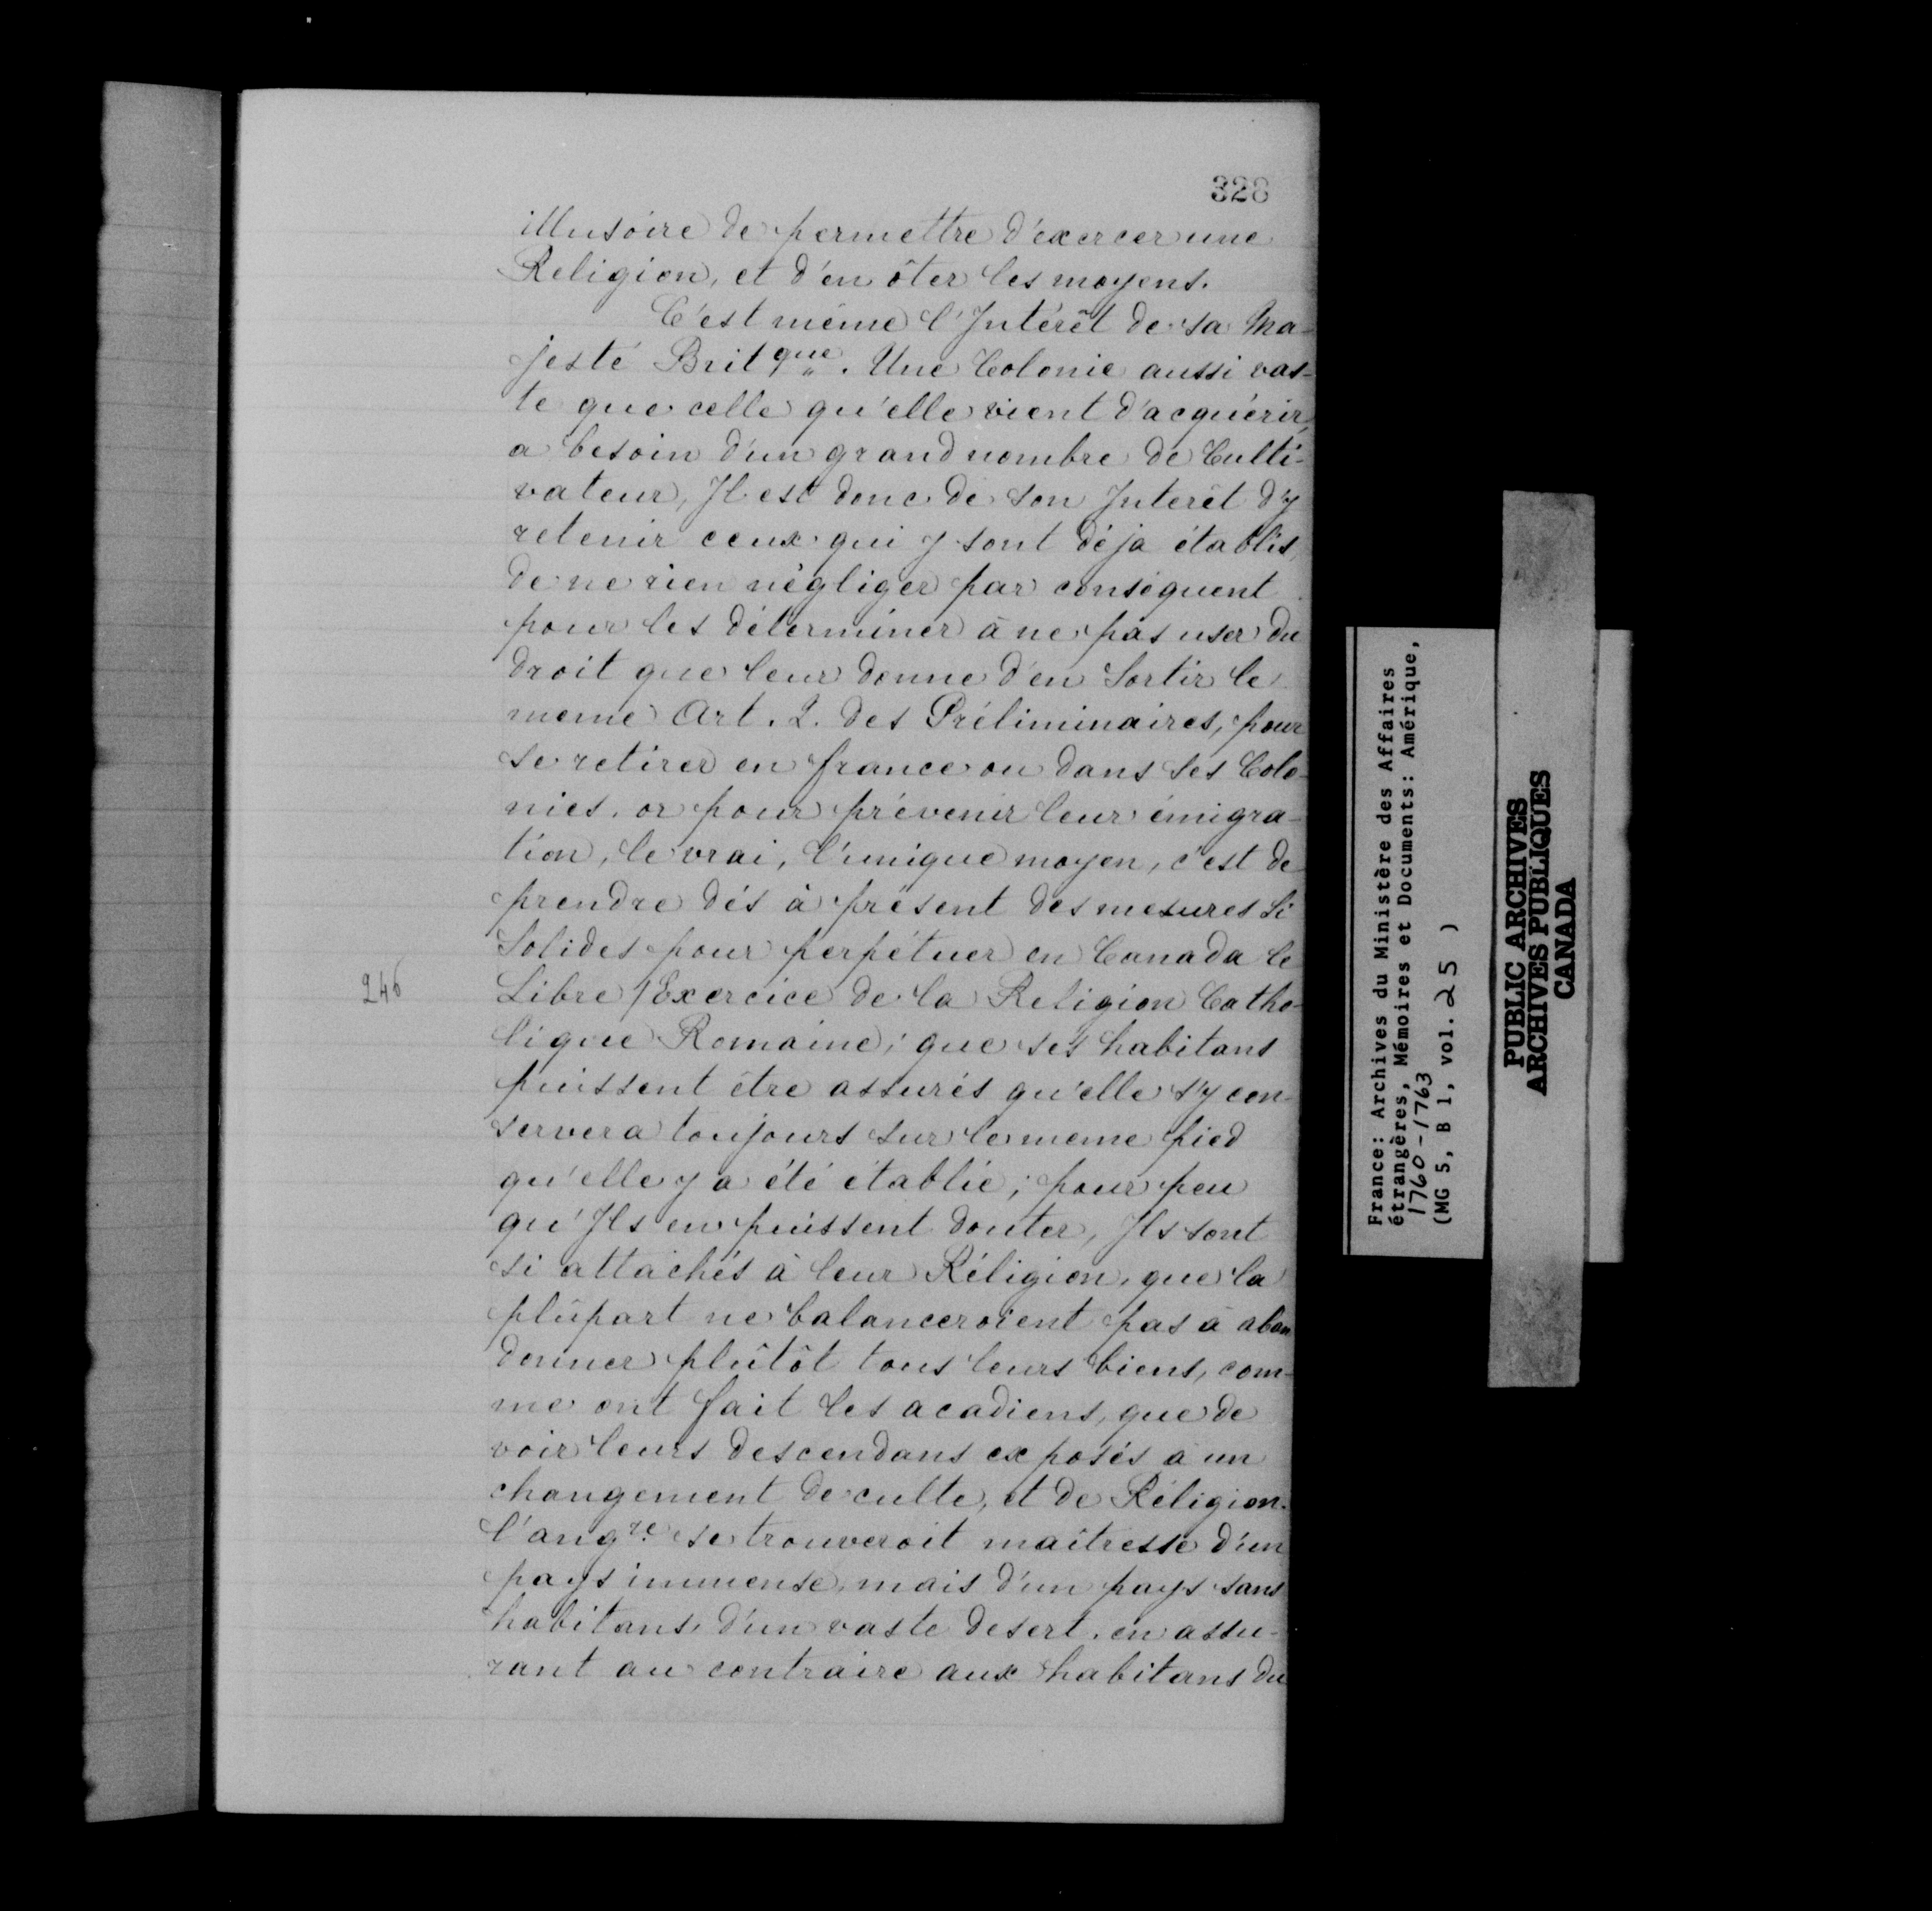 328
illusoire de permettre d'exercer une
Religion, et d'en ôter les moyens.
C'est même l'Intérêt de sa Ma-
jesté Britque. Une Colonie aussi vas-
te que celle qu'elle vient d'acquérir,
a besoin d'un grand nombre de Culti-
vateur, Il est donc de son Interêt d'y
retenir ceux qui y sont déja établis,
de ne rien négliger par conséquent
pour les déterminer à ne pas user du
droit que leur donne d'en Sortir le
meme Art. 2. des Préliminaires, pour
se retirer en france ou dans ses Colo-
nies. or pour prévenir leur émigra-
tion, le vrai, l'unique moyen, c'est de
prendre dés à présent des mesures Si
Solides pour perpétuer en Canada le
246
Libre / Exercice de la Religion Catho-
lique Romaine; que ses habitans
puissent être assurés qu'elle s'y con-
servera toujours sur le meme pied
qu'elle y a été établie; pour peu
qu'Ils en puissent douter, Ils sont
si attachés à leur Réligion, que la
plûpart ne balanceroient pas à aban
donner plûtôt tous leurs biens, com-
me ont fait les acadiens, que de
voir leurs descendans exposés à un
changement de culte, et de Réligion.
l'angre. se trouveroit maîtresse d'un
pays immense, mais d'un pays sans
habitans, d'un vaste desert. en assu-
rant au contraire aux habitans du
France: Archives du Ministère des Affaires
étrangères, Mémoires et Documents: Amérique,
1760-1763
(MG 5, B 1, vol. 25 )
PUBLIC ARCHIVES
ARCHIVES PUBLIQUES
CANADA